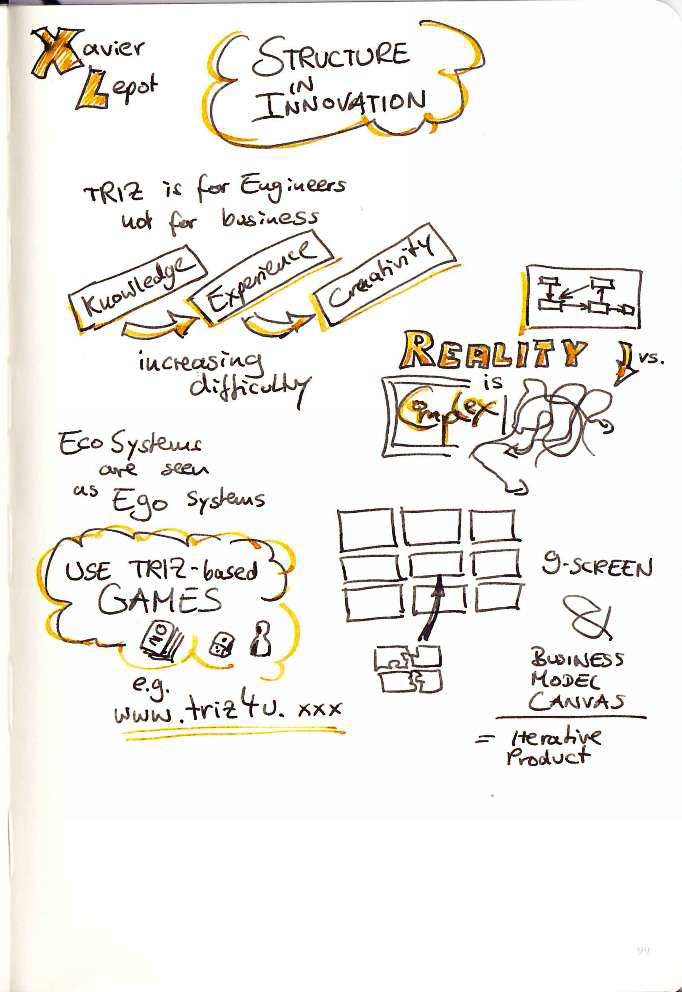 Xavier
Lepot
STRUCTURE
IN
INNOVATION
TRIZ is for Engineers
not for business
Knowledge
Experience
Creativity
increasing
difficulty
REALITY
vs.
is
Complex
Eco Systems
are seen
as Ego Systems
USE TRIZ-based
GAMES
NO
e.g.
www.triz4u.xxx
9-SCREEN
&
BUSINESS
MODEL
CANVAS
= Iterative
Product
99